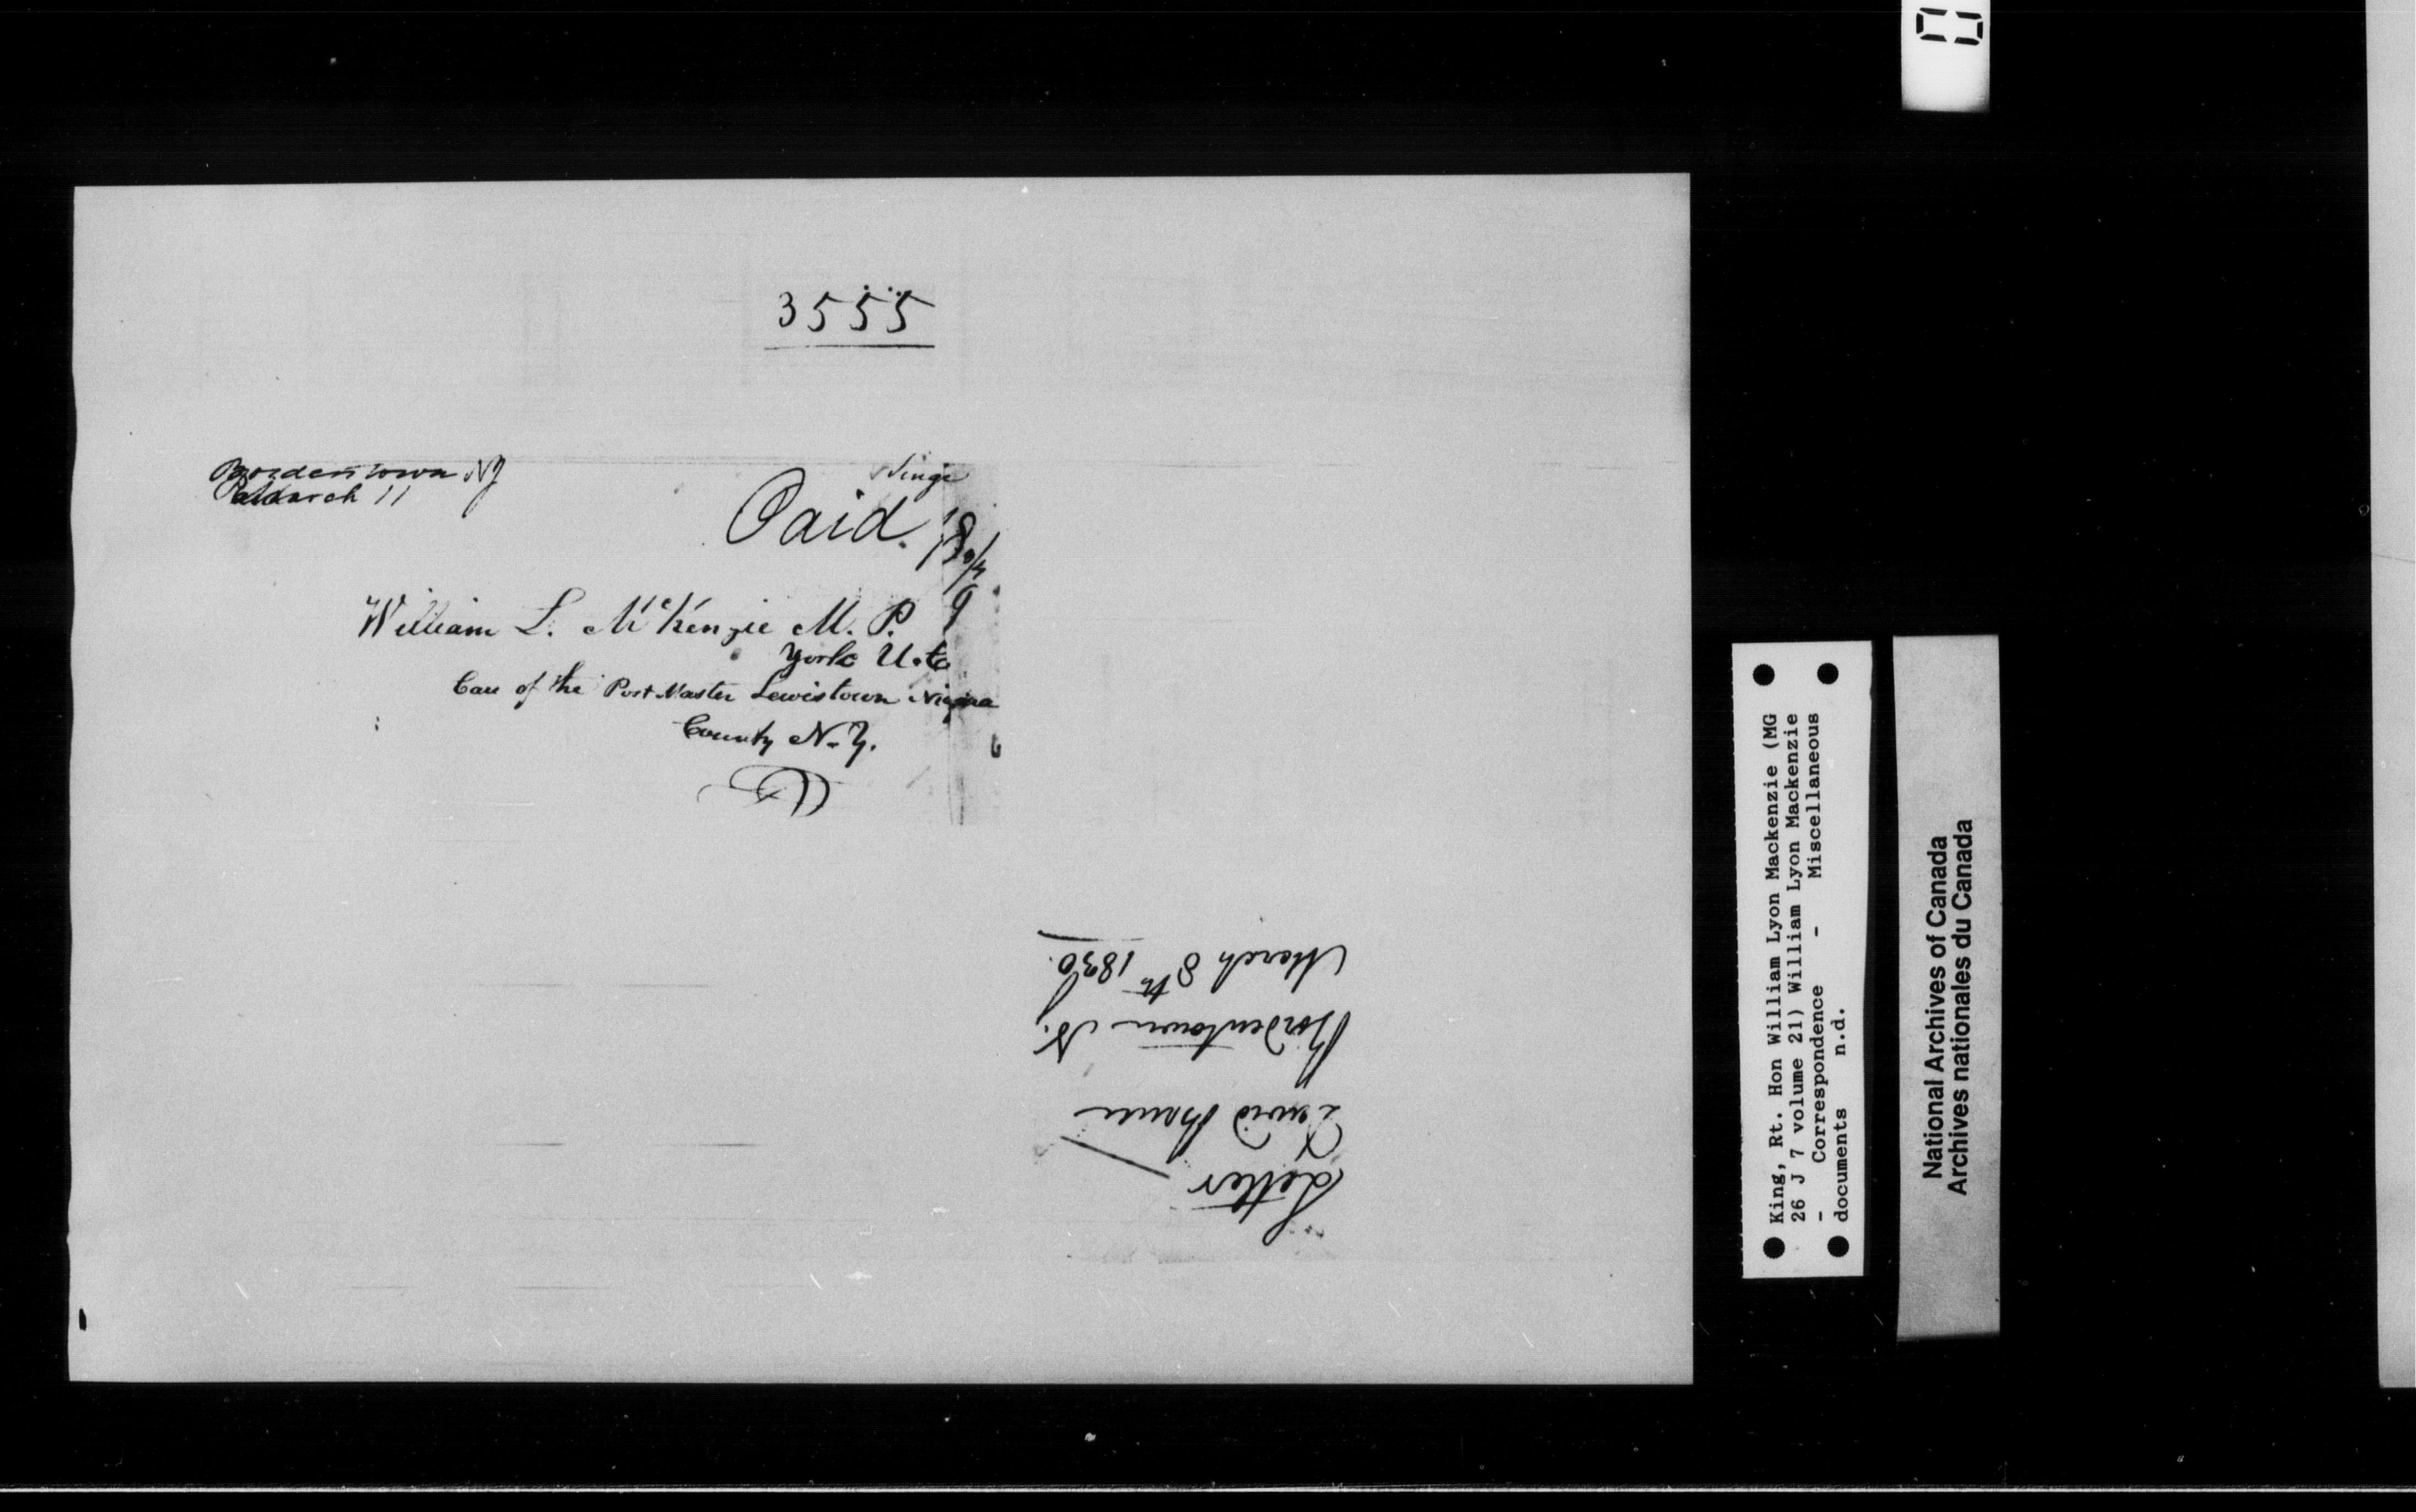 3555
Bordentown NJ
March 11
Singe
Paid.
William L. McKenzie M. P.
York U.C.
Care of the Post Master Lewistown Niagara
County N.Y.
Letter
David Bruce
Bordentown N.J
March 8th 1830.
King, Rt. Hon William Lyon Mackenzie (MG
26 J 7 volume 21) William Lyon Mackenzie
- Correspondence - Miscellaneous
documents n.d.
National Archives of Canada
Archives nationales du Canada